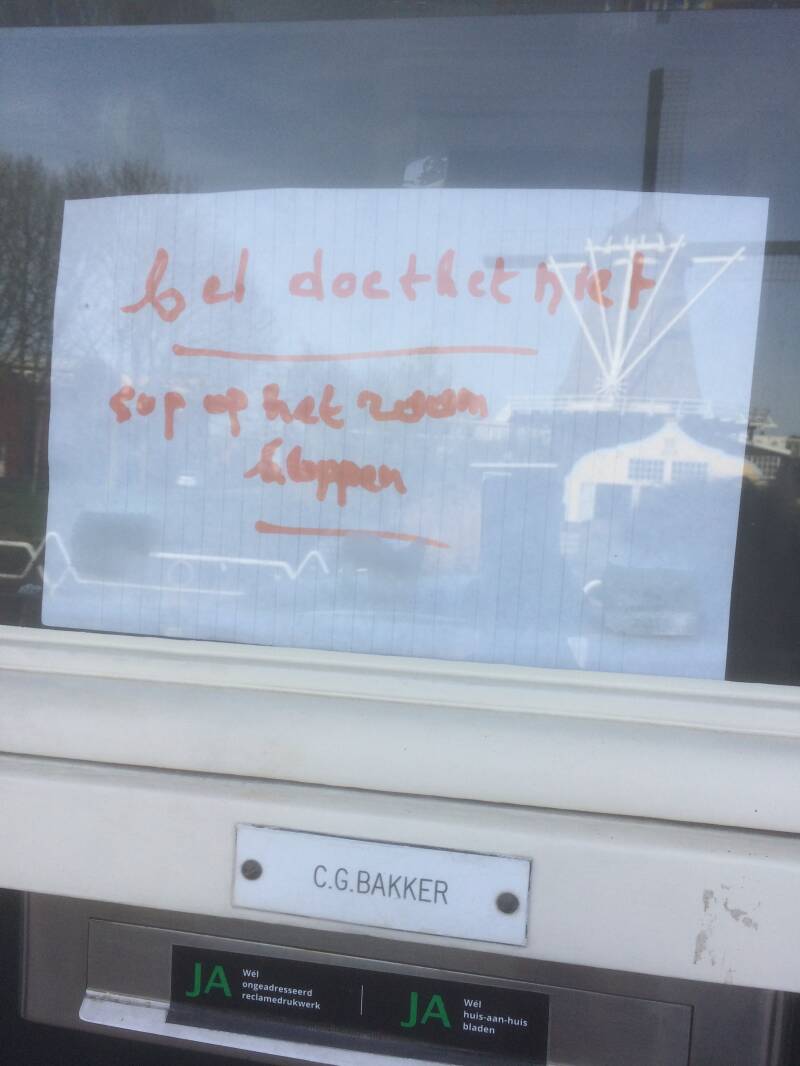 bel doet het niet
sop op het raam
kloppen
C.G.BAKKER
JA Wél
ongeadresseerd
reclamedrukwerk
JA Wél
huis-aan-huis
bladen